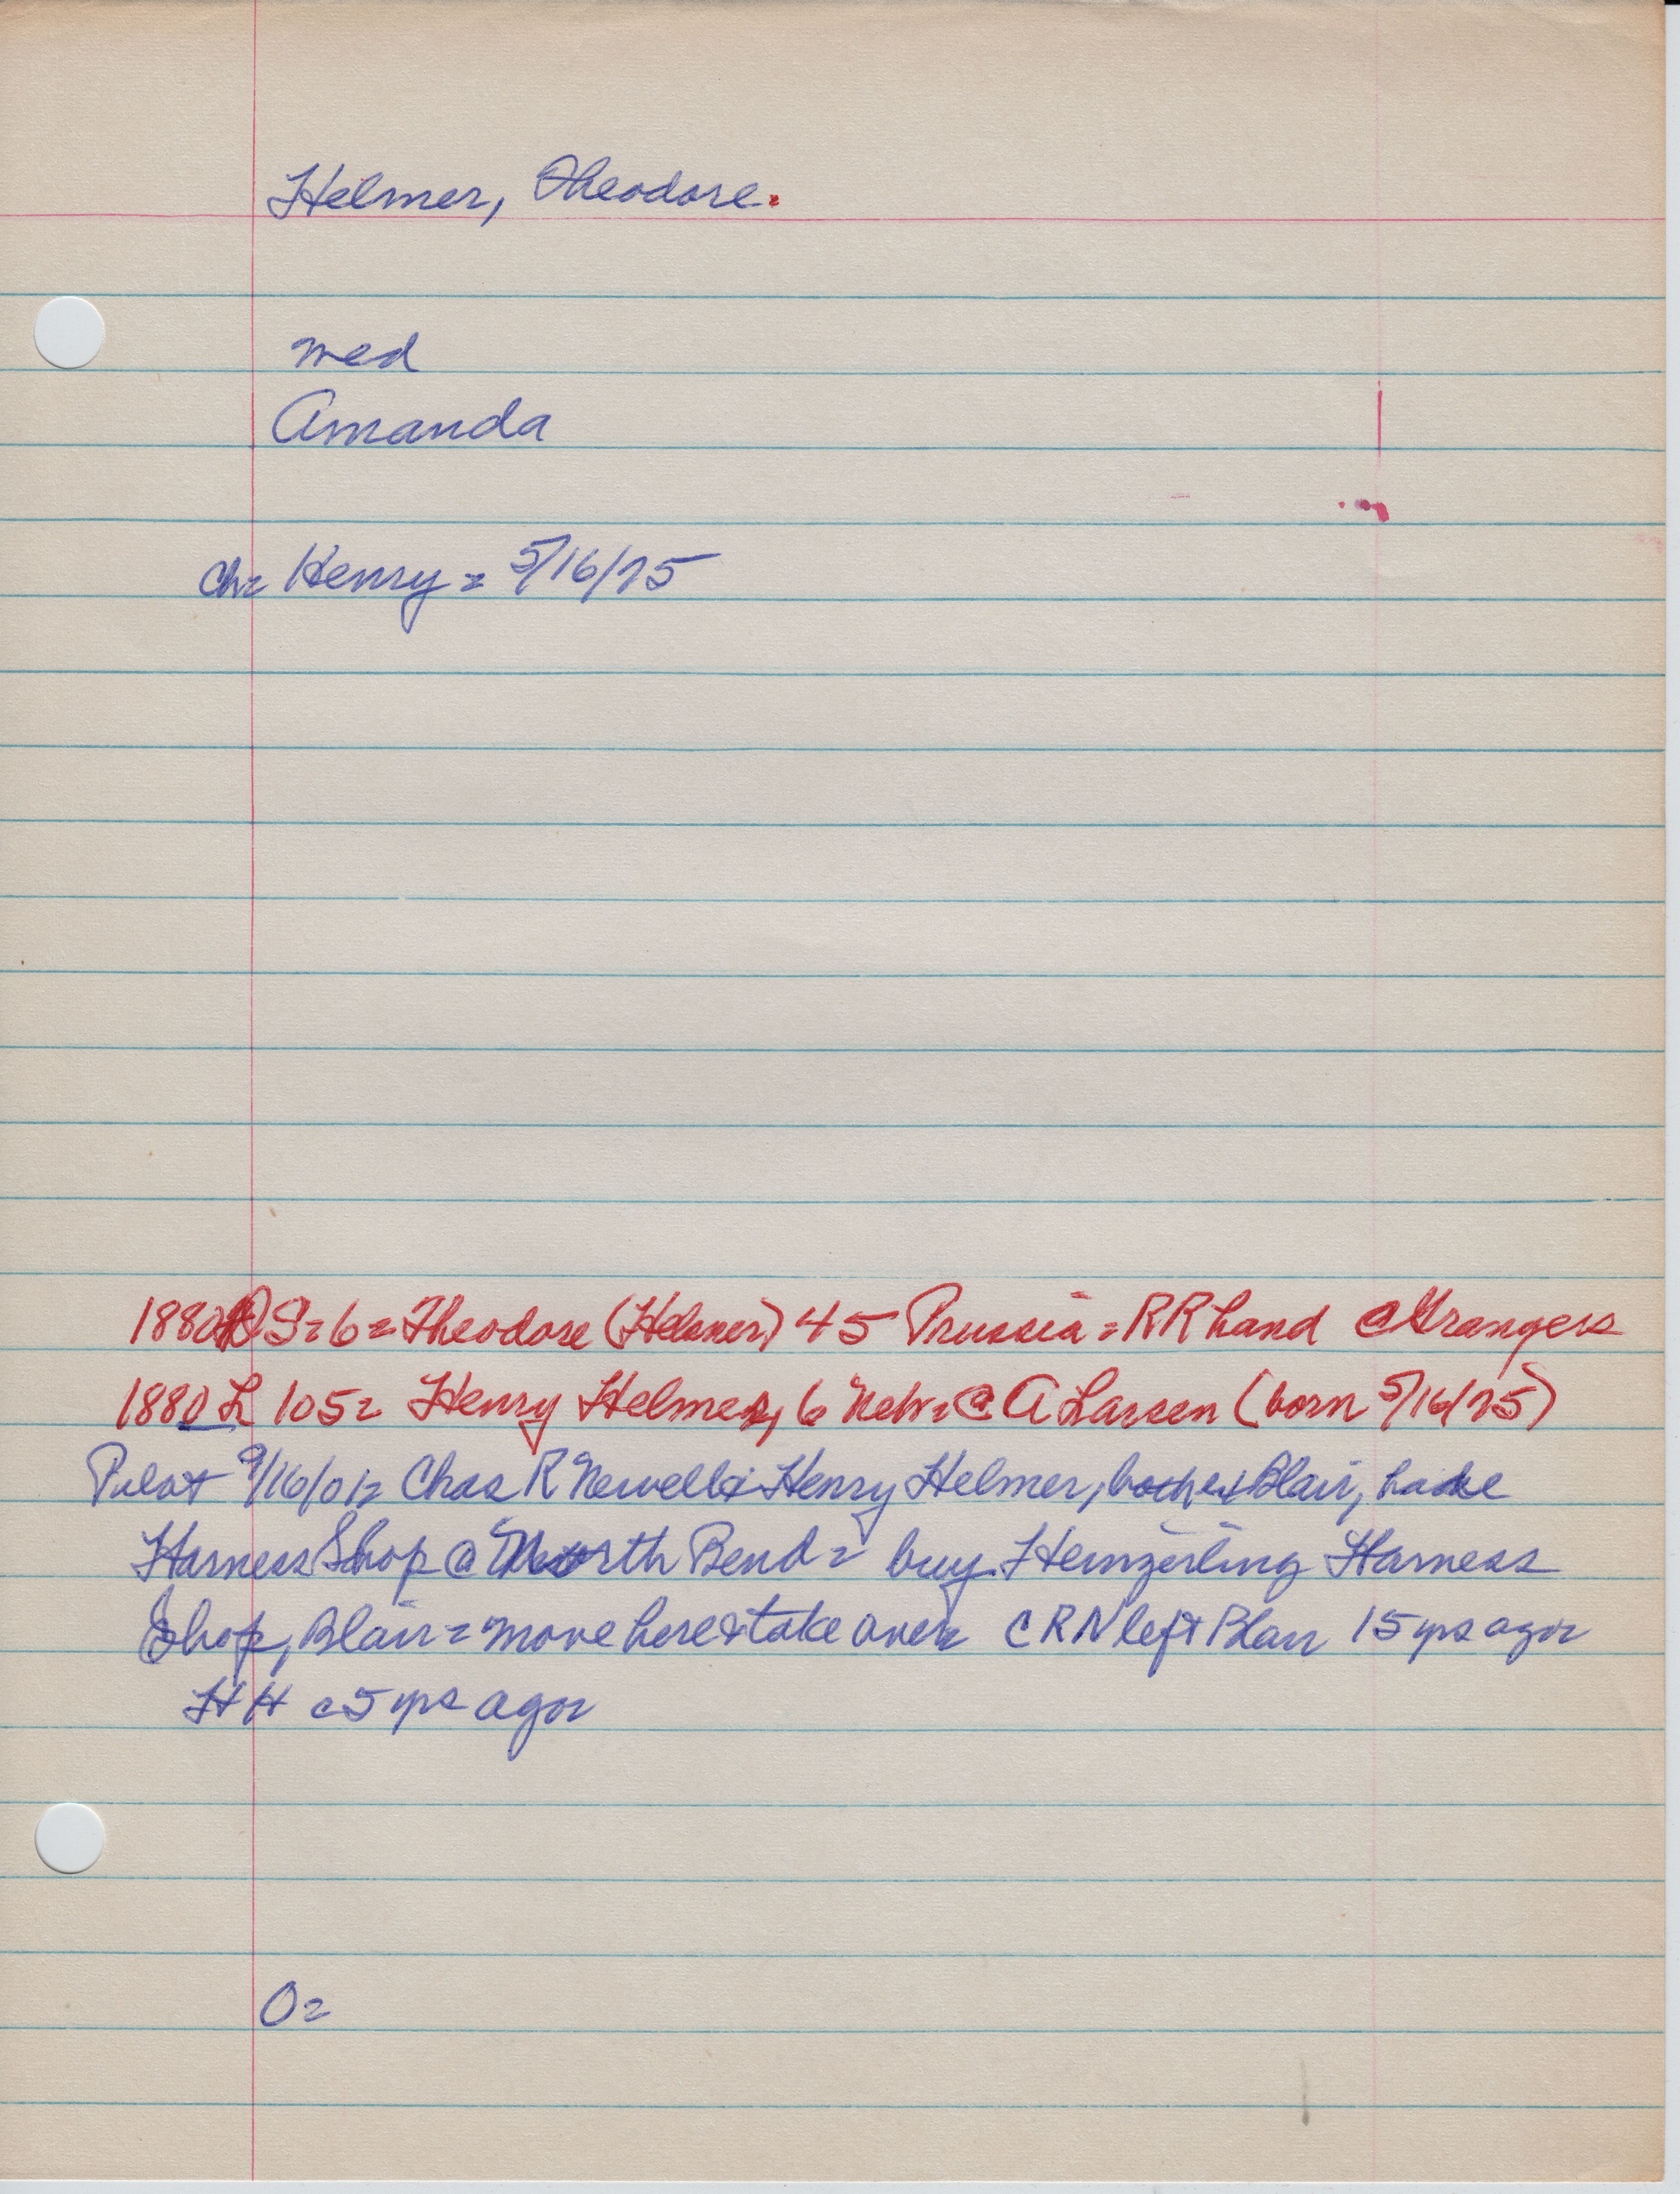 Helmer, Theodore.
med
Amanda
ch= Henry = 5/16/75
1880 DS=6= Theodore (Helmer) 45 Prussia = RR hand @ Grangers
1880 L 105= Henry Helmer, 6 Neb= @ A Larsen (born 5/16/75)
Pilot 9/16/01= Chas R Newell & Henry Helmer, both ex Blair, have
Harness Shop @ North Bend = buy Heinzerling Harness
Shop, Blair = move here & take over CRN left Blair 15 yrs ago=
HH c5 yrs ago=
O=